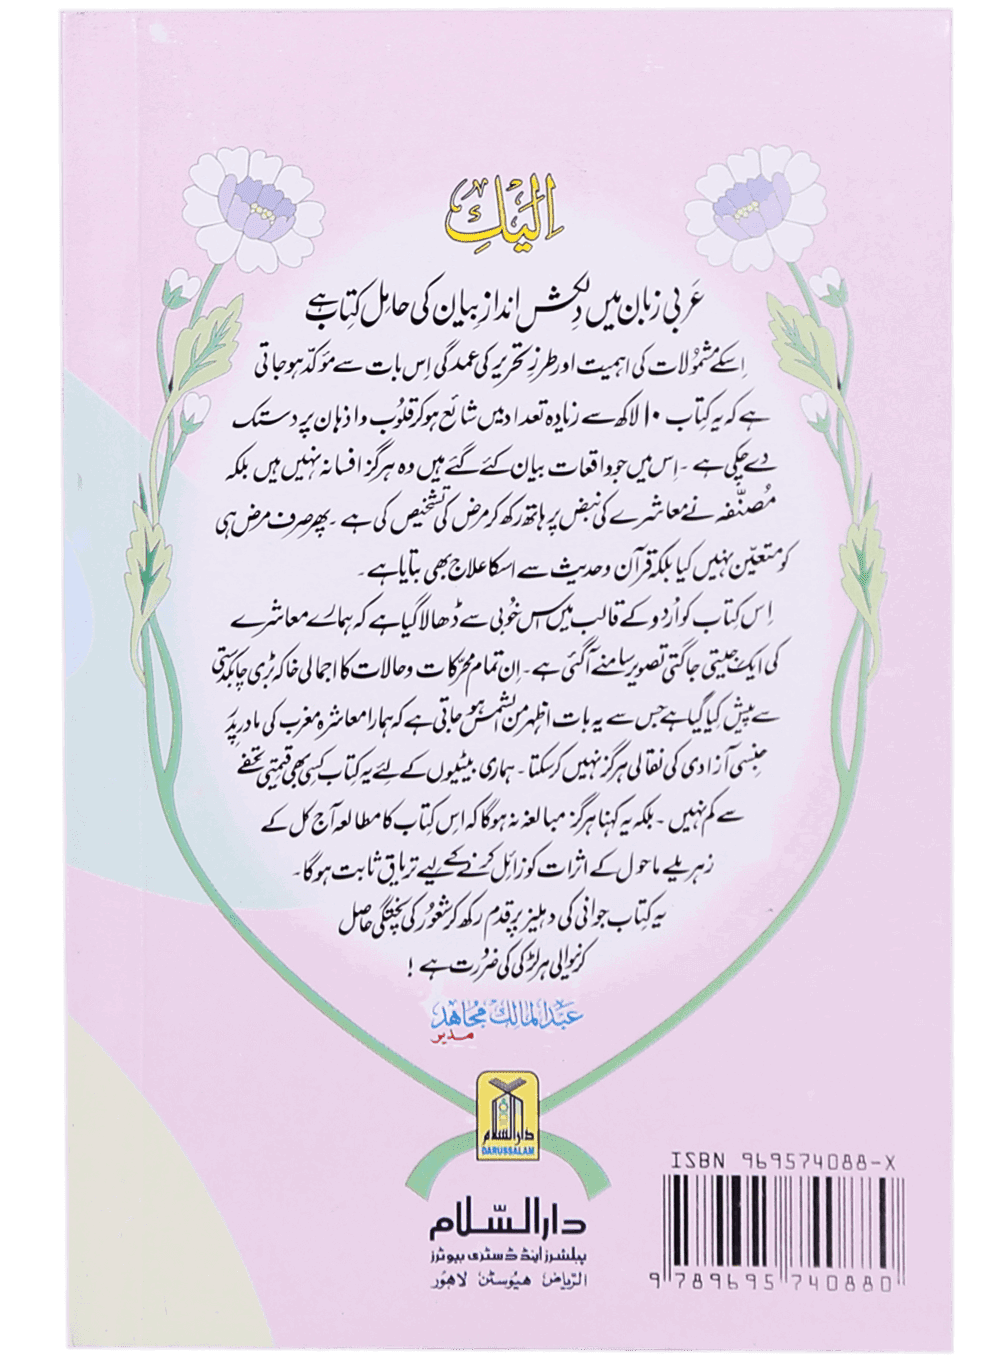 اِلَیکِ
عَربی زبان میں دِلکش اندازِ بیان کی حامِل کِتاب ہے
اِسکے مشمُولات کی اہمیت اور طرزِ تحریر کی عمدگی اِس بات سے مؤکدّ ہو جاتی
ہے کہ یہ کِتاب ۱۰ لاکھ سے زیادہ تعداد میں شائع ہو کر قلوُب و اذہان پر دستک
دے چکی ہے ۔ اِس میں جو واقعات بیان کئے گئے ہیں وہ ہرگز افسانہ نہیں ہیں بلکہ
مُصنّفہ نے معاشرے کی نبض پر ہاتھ رکھ کر مرض کی تشخیص کی ہے ۔ پھر صرف مرض ہی
کو متعیّن نہیں کیا بلکہ قرآن و حدیث سے اسکا علاج بھی بتایا ہے ۔
اِس کِتاب کو اُردو کے قالب میں اس خُوبی سے ڈھالا گیا ہے کہ ہمارے معاشرے
کی ایک جیتی جاگتی تصویر سامنے آگئی ہے ۔ اِن تمام محرّکات و حالات کا اجمالی خاکہ بڑی چابکدستی
سے پیش کیا گیا ہے جس سے یہ بات اظہر من الشمس ہو جاتی ہے کہ ہمارا معاشرہ مغرب کی مادر پدر
جنسی آزادی کی نقالی ہرگز نہیں کرسکتا ۔ ہماری بیٹیوں کے لئے یہ کِتاب کِسی بھی قیمتی تحفے
سے کم نہیں ۔ بلکہ یہ کہنا ہرگز مبالغہ نہ ہوگا کہ اس کِتاب کا مطالعہ آج کل کے
زہریلے ماحول کے اثرات کو زائل کرنے کے لیے تریاق ثابت ہوگا ۔
یہ کِتاب جوانی کی دہلیز پر قدم رکھ کر شعُور کی پختگی حاصل
کرنیوالی ہر لڑکی کی ضرُورت ہے !
عَبدُالمالِک مُجاھد
مدیر
دارالسلام
DARUSSALAM
دارالسّلام
پبلشرز اینڈ ڈسٹری بیوٹرز
الرّیاض ھیُوسٹن لاھوُر
ISBN 969574088-X
9 789695 740880